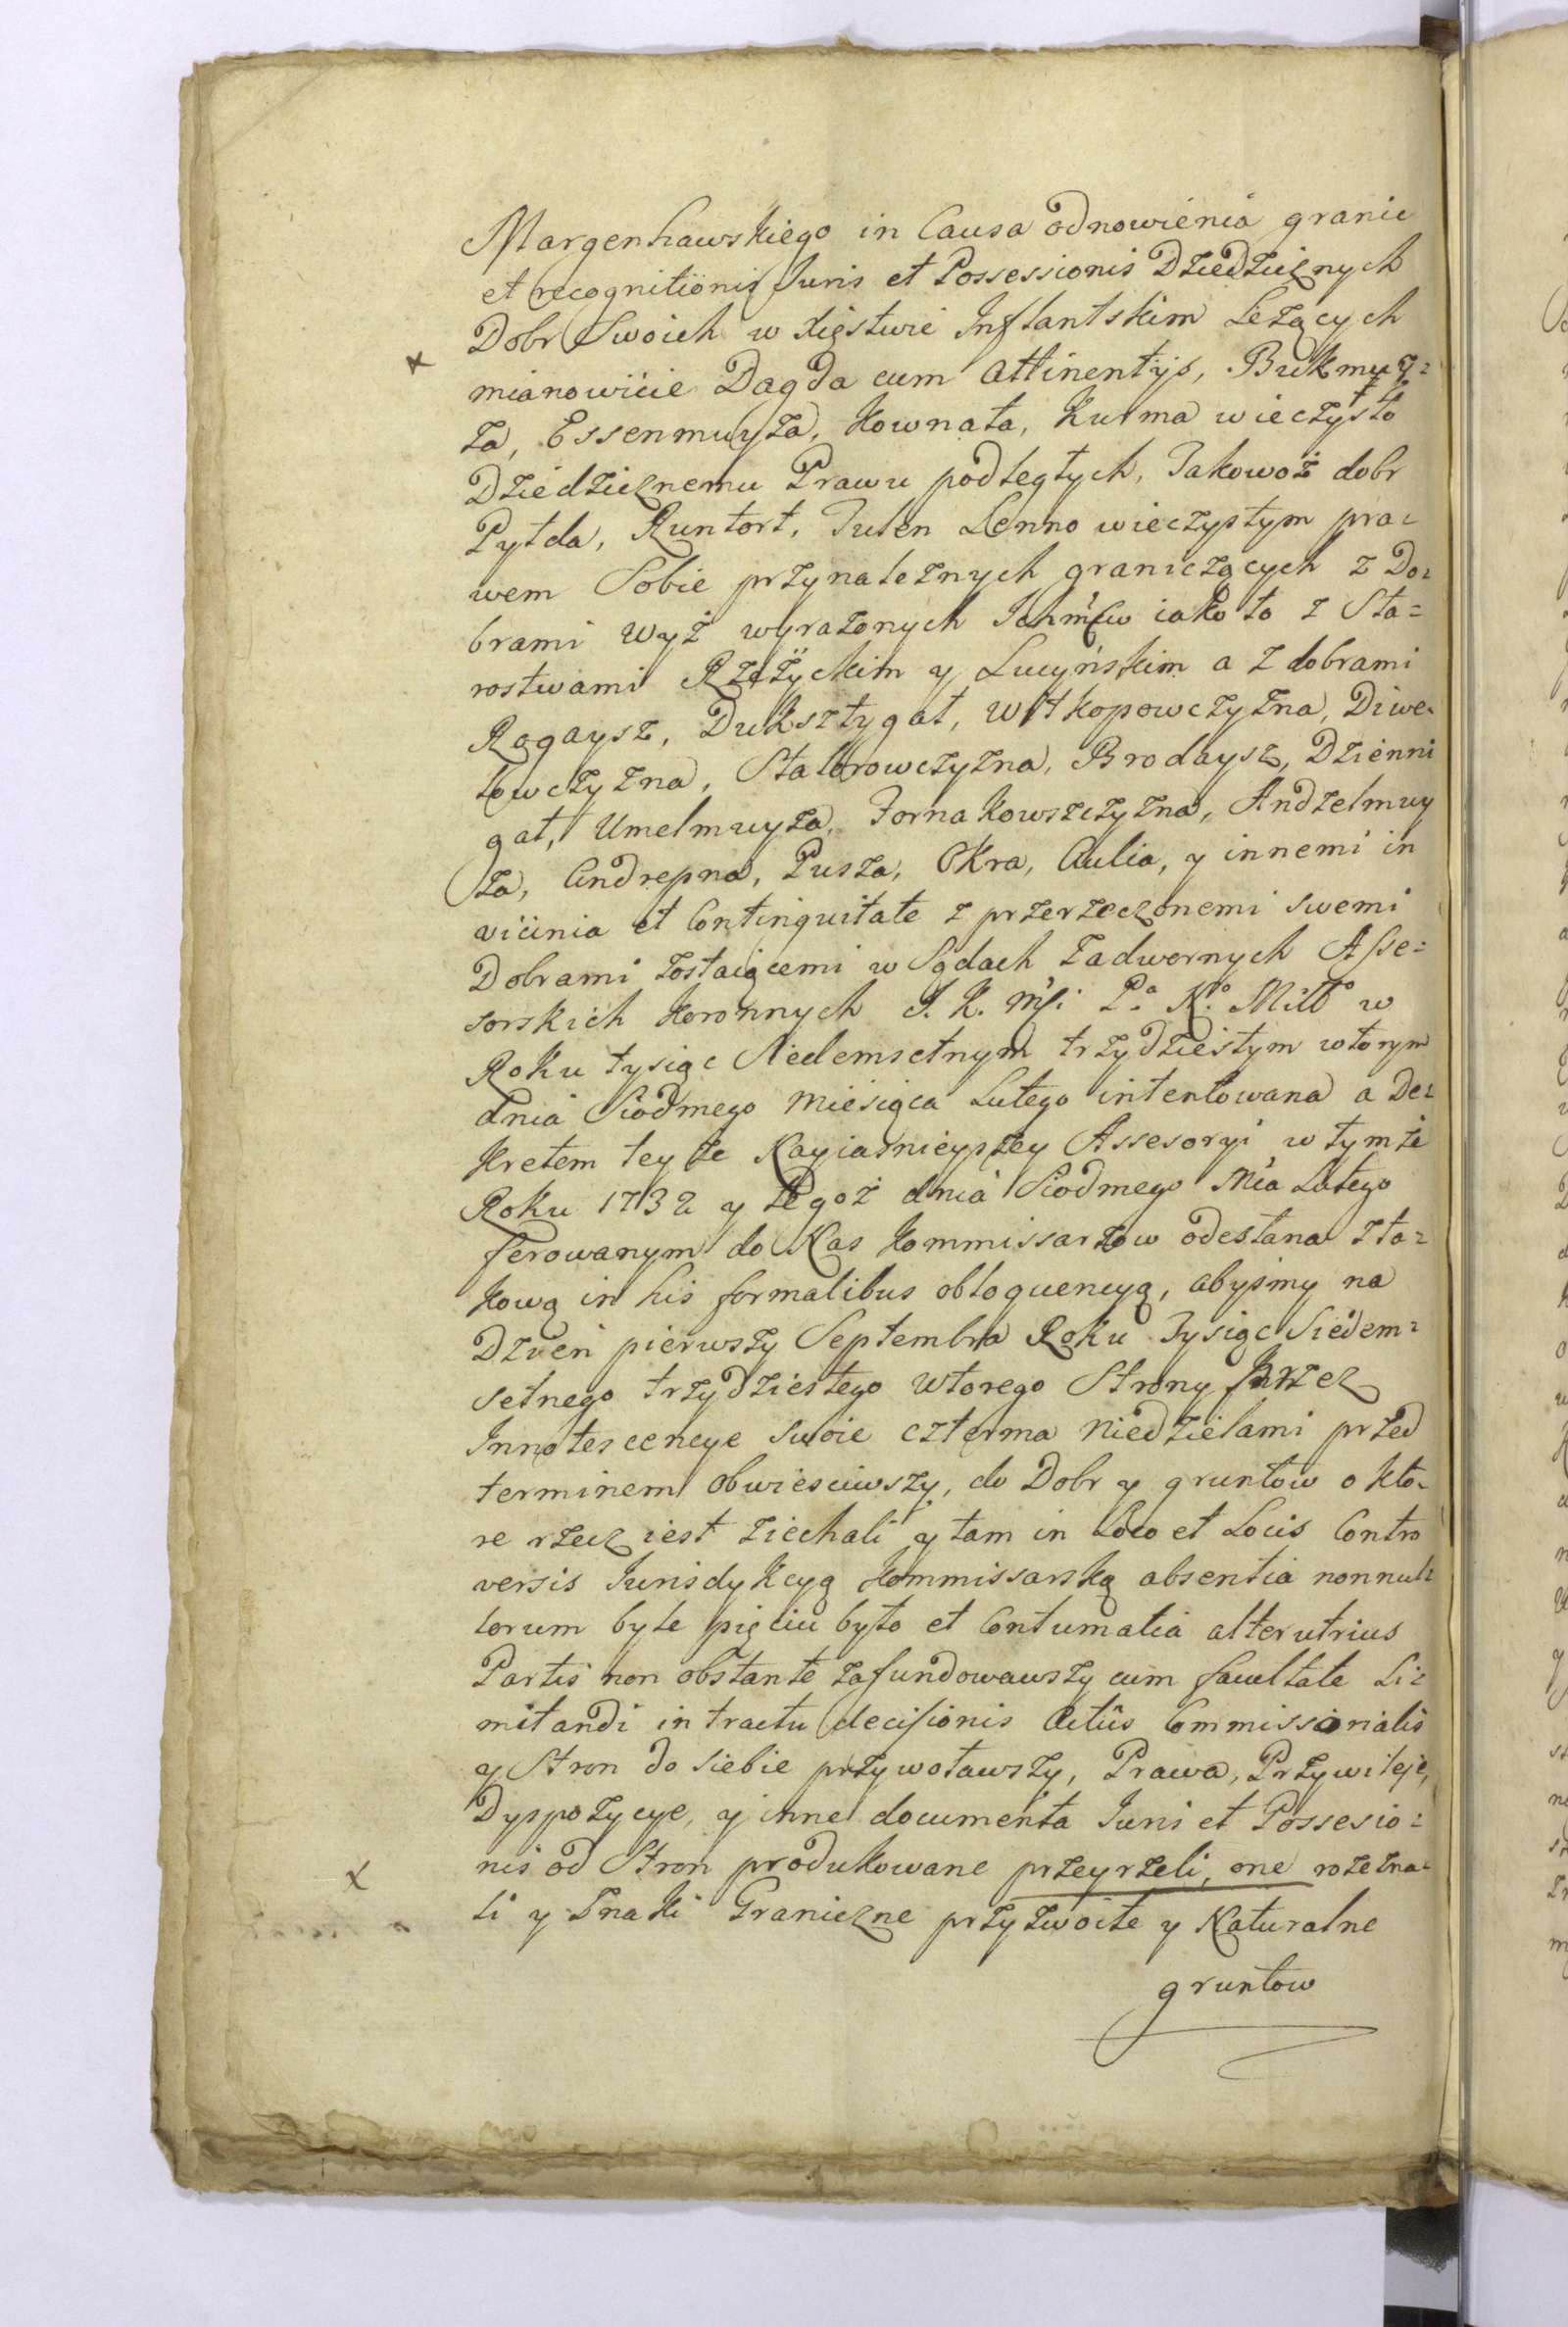 Margenhawskiego in Causa odnowienia granic
et recognitionis Juris et Possessionis Dziedzicznych
Dobr Swoich w Xięstwie Inflantskim Leżących
x mianowicie Dagda cum attinentijs, Bukmuy=
ża, Essenmuyża, Kownata, Kurma wieczysto
Dziedzicznemu Prawu podległych, Takowoż dobr
Pytda, Runtort, Tulen Lenno wieczystym pra=
wem Sobie przynależnych graniczących z Do=
brami wyż wyrażonych Ichmćw iako to z Sta=
rostwami Rzeżyckim y Lucyńskim a z dobrami
Rogaysz, Duksztygat, Witkopowczyzna, Diwe=
łowczyzna, Stalorowczyzna, Brodaysz, Dzienni
gat, Umelmuyża, Fornakowszczyzna, Andzelmuy
ża, Andrepna, Pusza, Okra, Aulia, y innemi in
vicinia et Continguitate z przerzeczonemi swemi
Dobrami zostaiącemi w Sądach Zadwornych Asse=
sorskich Koronnych J. K. Mści P.ª N.º Mił.º w
Roku tysiąc Siedemsetnym trzydziestym wtorym
dnia Siodmego Miesiąca Lutego intentowana a De=
kretem teyże Nayiaśnieyszey Assesoryi w tymże
Roku 1732 y tegoż dnia Siodmego Mca Lutego
ferowanym do Nas Kommissarzow odesłana z ta=
kową in his formalibus obloquencyą, abyśmy na
Dzień pierwszy Septembra Roku Tysiąc Siedem=
setnego trzydziestego wtorego Strony przez
Innotescencye swoie czterma Niedzielami przed
terminem obwieściwszy, do Dobr y gruntow o kto=
re rzecz iest ziechali y tam in Loco et Locis Contro
versis Jurisdykcyą Kommissarską absentia nonnul=
lorum byle pięciu było et Contumatia alterutrius
Partis non obstante zafundowawszy cum facultate Li=
mitandi in tractu decisionis Actûs Commissionalis
y Stron do siebie przywoławszy, Prawa, Przywileje,
Dyspozycye, y inne documenta Juris et Possesio=
x nis od Stron produkowane przeyrzeli, one rozezna=
li y Znaki Graniczne przyzwoite y Naturalne
gruntow